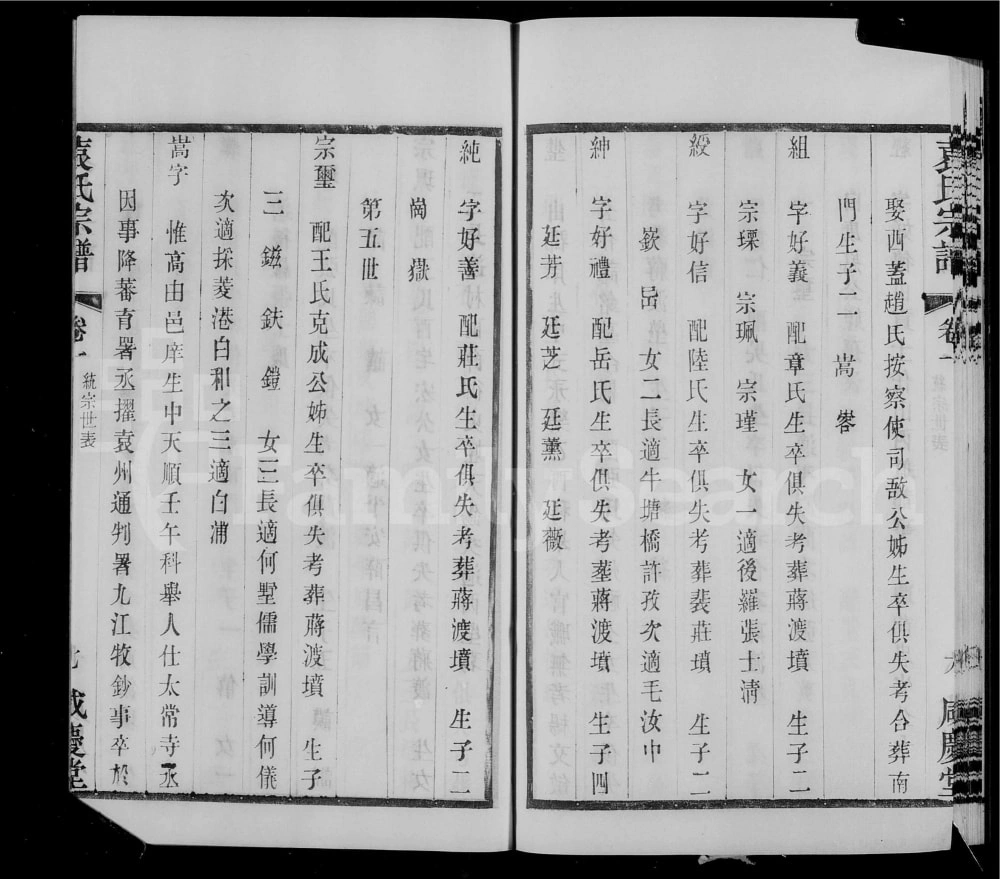 袁氏宗譜 卷一 咸慶堂
娶西蓋趙氏按察使司敔公姊生卒俱失考合葬南
門生子二 嵩 喾
組 字好義 配章氏生卒俱失考葬蔣渡墳 生子二
宗璟 宗珮 宗瑾 女一適後羅張士淸
綬 字好信 配陸氏生卒俱失考葬裴莊墳 生子二
嶔 嵒 女二長適牛塘橋許孜次適毛汝中
紳 字好禮 配岳氏生卒俱失考塟蔣渡墳 生子四
廷芳 廷芝 廷薰 廷薇
純 字好善 配莊氏生卒俱失考葬蔣渡墳 生子二
崗 嶽
第五世
宗璽 配王氏克成公姊生卒俱失考葬蔣渡墳 生子
三 鎡 鈇 鎧 女三長適何墅儒學訓導何儀
次適採菱港白和之三適白浦
嵩字 惟高由邑庠生中天順壬午科舉人仕太常寺丞
因事降蕃育署丞擢袁州通判署九江牧鈔事卒於
袁氏宗譜 卷一 統宗世表 咸慶堂
FamilySearch